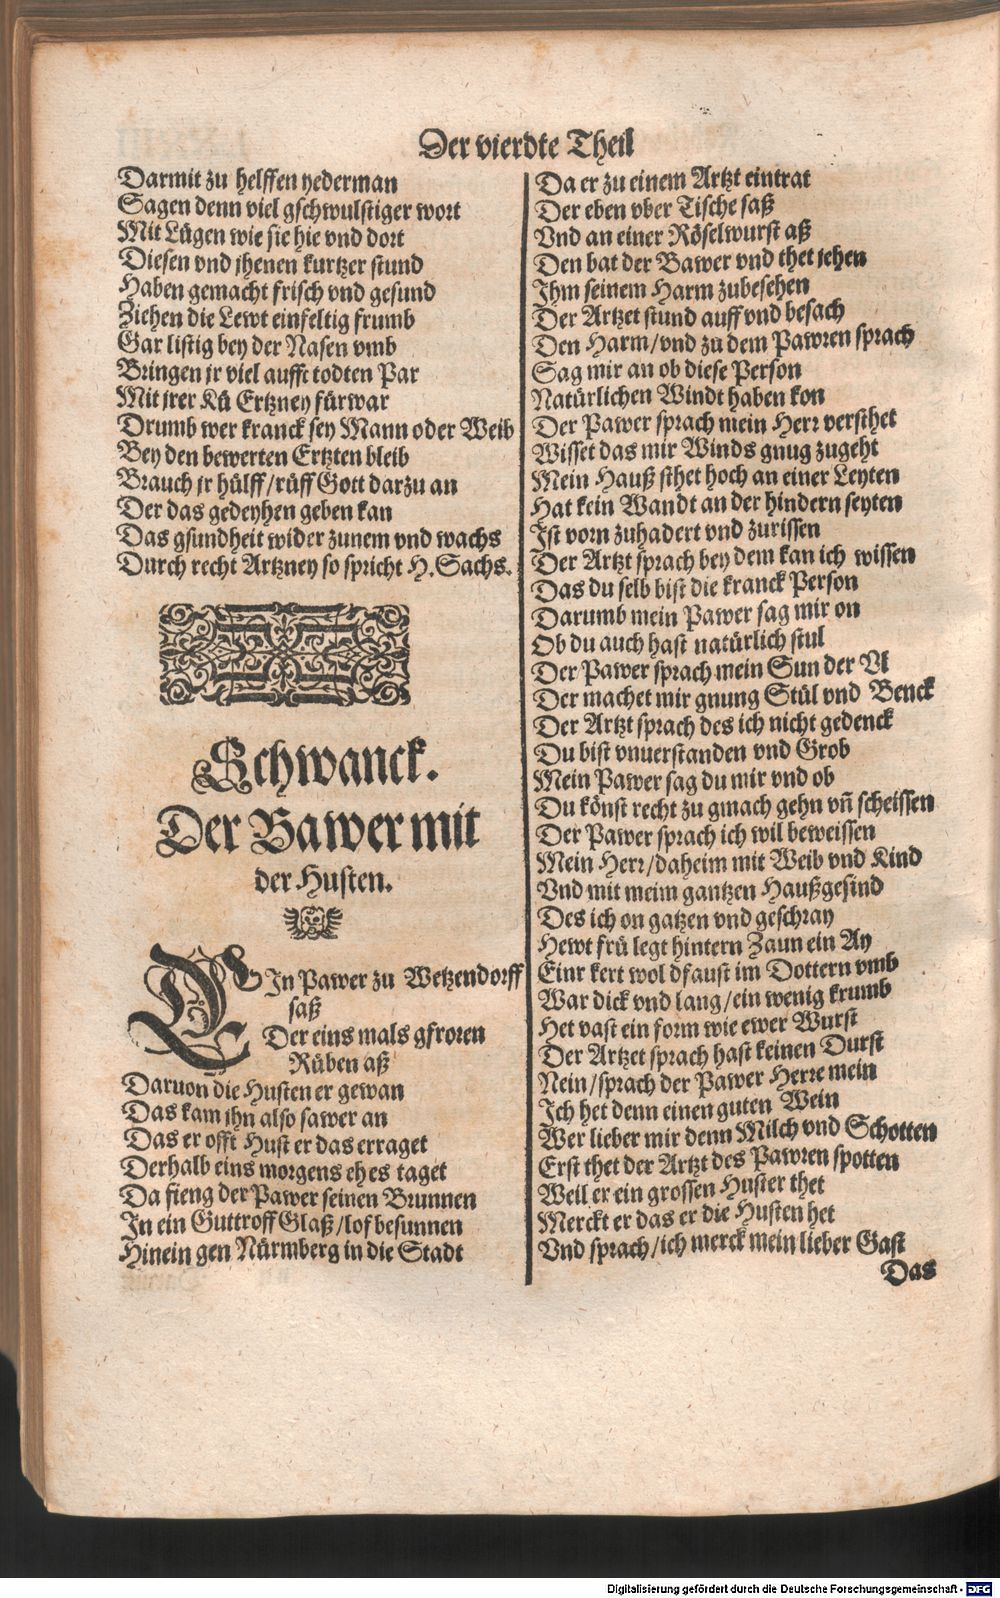 Der vierdte Theil
Darmit zu helffen yederman
Sagen denn viel gschwulstiger wort
Mit Lügen wie sie hie vnd dort
Diesen vnd jhenen kurtzer stund
Haben gemacht frisch vnd gesund
Ziehen die Lewt einfeltig frumb
Gar listig bey der Nasen vmb
Bringen jr viel aufft todten Par
Mit jrer Kü Ertzney fürwar
Drumb wer kranck sey Mann oder Weib
Bey den bewerten Ertzten bleib
Brauch jr hülff/rüff Gott darzu an
Der das gedeyhen geben kan
Das gsundheit wider zunem vnd wachs
Durch recht Artzney so spricht H. Sachs.
Schwanck.
Der Bawer mit
der Husten.
EIn Pawer zu Wetzendorff
saß
Der eins mals gfroren
Rüben aß
Daruon die Husten er gewan
Das kam jhn also sawer an
Das er offt Hust er das erraget
Derhalb eins morgens eh es taget
Da fieng der Pawer seinen Brunnen
In ein Guttroff Glaß/lof besunnen
Hinein gen Nürmberg in die Stadt
Da er zu einem Artzt eintrat
Der eben vber Tische saß
Vnd an einer Röselwurst aß
Den bat der Bawer vnd thet jehen
Ihm seinem Harm zubesehen
Der Artzet stund auff vnd besach
Den Harm/vnd zu dem Pawren sprach
Sag mir an ob diese Person
Natürlichen Windt haben kon
Der Pawer sprach mein Herr versthet
Wisset das mir Winds gnug zugeht
Mein Hauß sthet hoch an einer Leyten
Hat kein Wandt an der hindern seyten
Ist vorn zuhadert vnd zurissen
Der Artzt sprach bey dem kan ich wissen
Das du selb bist die kranck Person
Darumb mein Pawer sag mir on
Ob du auch hast natürlich stul
Der Pawer sprach mein Sun der Vl
Der machet mir gnung Stül vnd Benck
Der Artzt sprach des ich nicht gedenck
Du bist vnuerstanden vnd Grob
Mein Pawer sag du mir vnd ob
Du könst recht zu gmach gehn vñ scheissen
Der Pawer sprach ich wil beweissen
Mein Herr/daheim mit Weib vnd Kind
Vnd mit meim gantzen Haußgesind
Des ich on gatzen vnd geschray
Hewt frü legt hintern Zaun ein Ay
Einr kert wol dfaust im Dottern vmb
War dick vnd lang/ein wenig krumb
Het vast ein form wie ewer Wurst
Der Artzet sprach hast keinen Durst
Nein/sprach der Pawer Herre mein
Ich het denn einen guten Wein
Wer lieber mir denn Milch vnd Schotten
Erst thet der Artzt des Pawren spotten
Weil er ein grossen Huster thet
Merckt er das er die Husten het
Vnd sprach/ich merck mein lieber Gast
Das
Digitalisierung gefördert durch die Deutsche Forschungsgemeinschaft - DFG